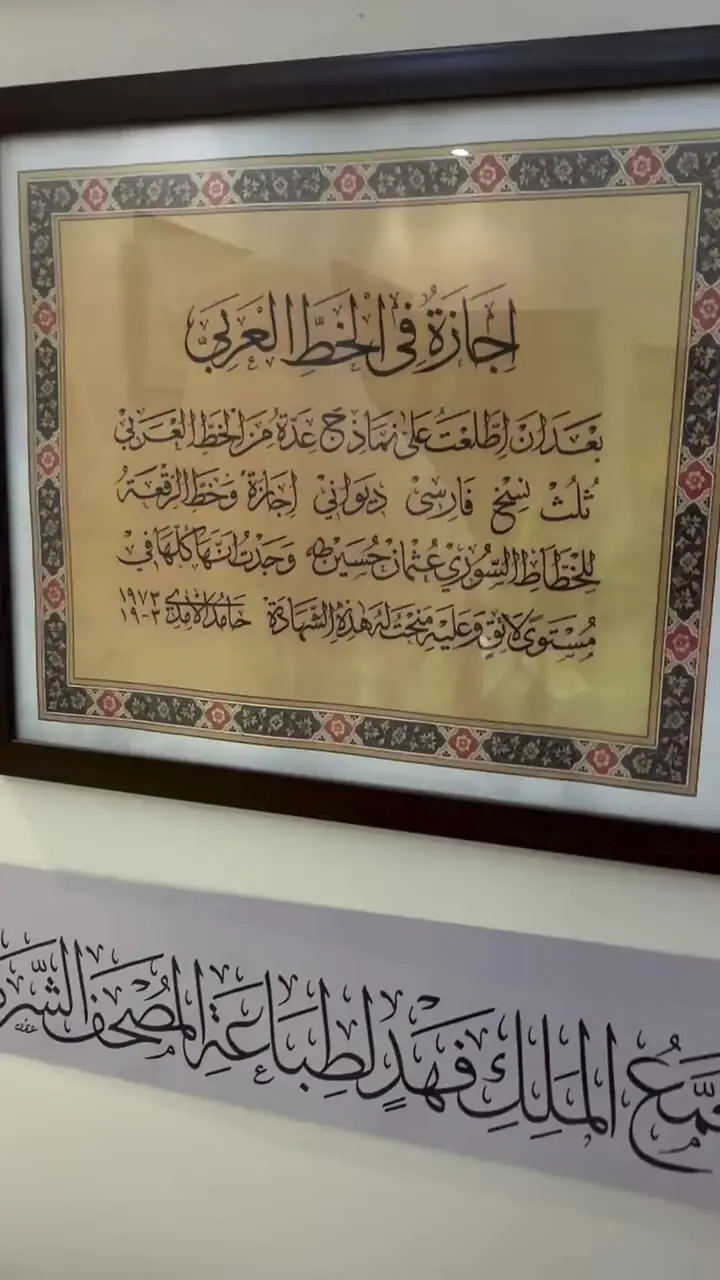 اِجَازَةٌ فِي الْخَطِّ الْعَرَبِيِّ
بَعْدَ اَنْ اِطَّلَعْتُ عَلىٰ نَمَاذِجَ عِدَّةٍ مِنَ الْخَطِّ الْعَرَبِيّ
ثُلُثْ نَسِخْ فَارِسِيْ دِيْوَانِيْ اِجَازَةْ وَخَطِّ الرِّقْعَةُ
لِلْخَطَّاطِ السُّوْرِيْ عُثْمَانْ حُسَيْنْ طه وَجَدْتُ اَنَّهَا كُلَّهَا فِيْ
مُسْتَوىً لَائِقٍ وَعَلَيْهِ مَنَحْتُ لَهُ هٰذِهِ الشَّهَادَةْ حَامِدُ الْآمِدِيْ ١٩٧٣
١٩-٣
مَّعُ الْمَلِكِ فَهْدٍ لِطِبَاعَةِ الْمُصْحَفِ